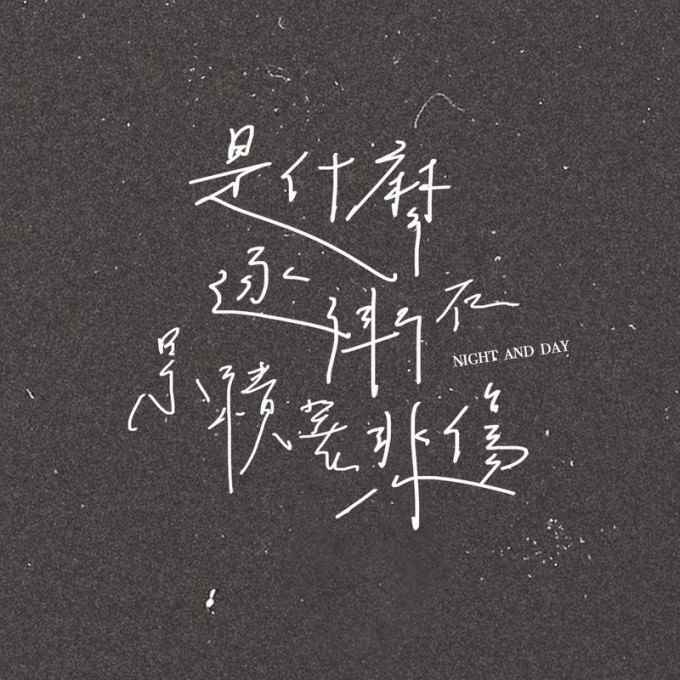 是什麼
逐漸在
NIGHT AND DAY
累積著悲傷